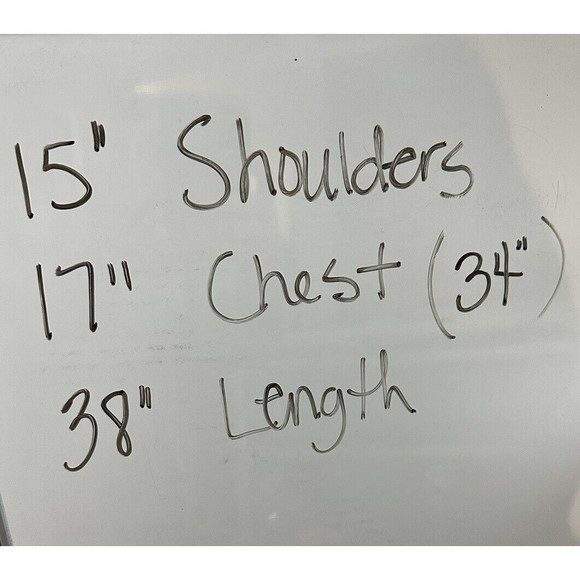 15" Shoulders
17" Chest (34")
38" Length